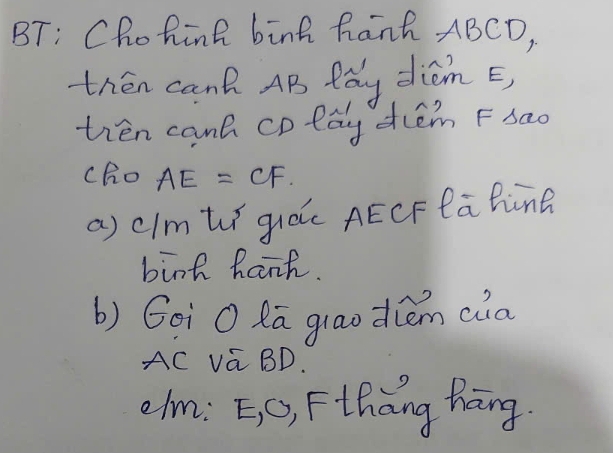 BT: Cho hình bình hành ABCD,
trên cạnh AB lấy điểm E,
trên cạnh CD lấy điểm F sao
cho AE = CF.
a) c/m tứ giác AECF là hình
bình hành.
b) Gọi O là giao điểm của
AC và BD.
c/m: E, O, F thẳng hàng.